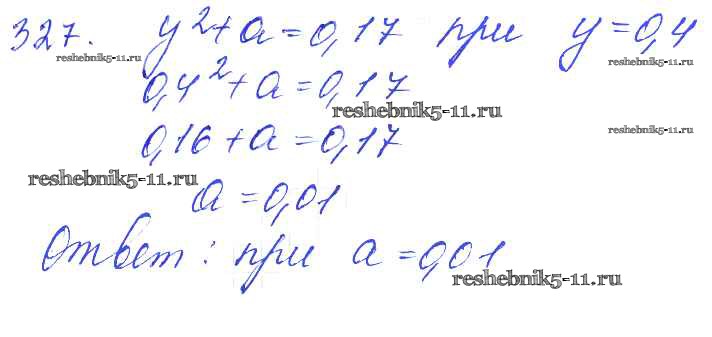 327. y²+a=0,17 при y=0,4
reshebnik5-11.ru reshebnik5-11.ru
0,4²+a=0,17
reshebnik5-11.ru
0,16+a=0,17 reshebnik5-11.ru
reshebnik5-11.ru
a=0,01
Ответ: при a=0,01
reshebnik5-11.ru